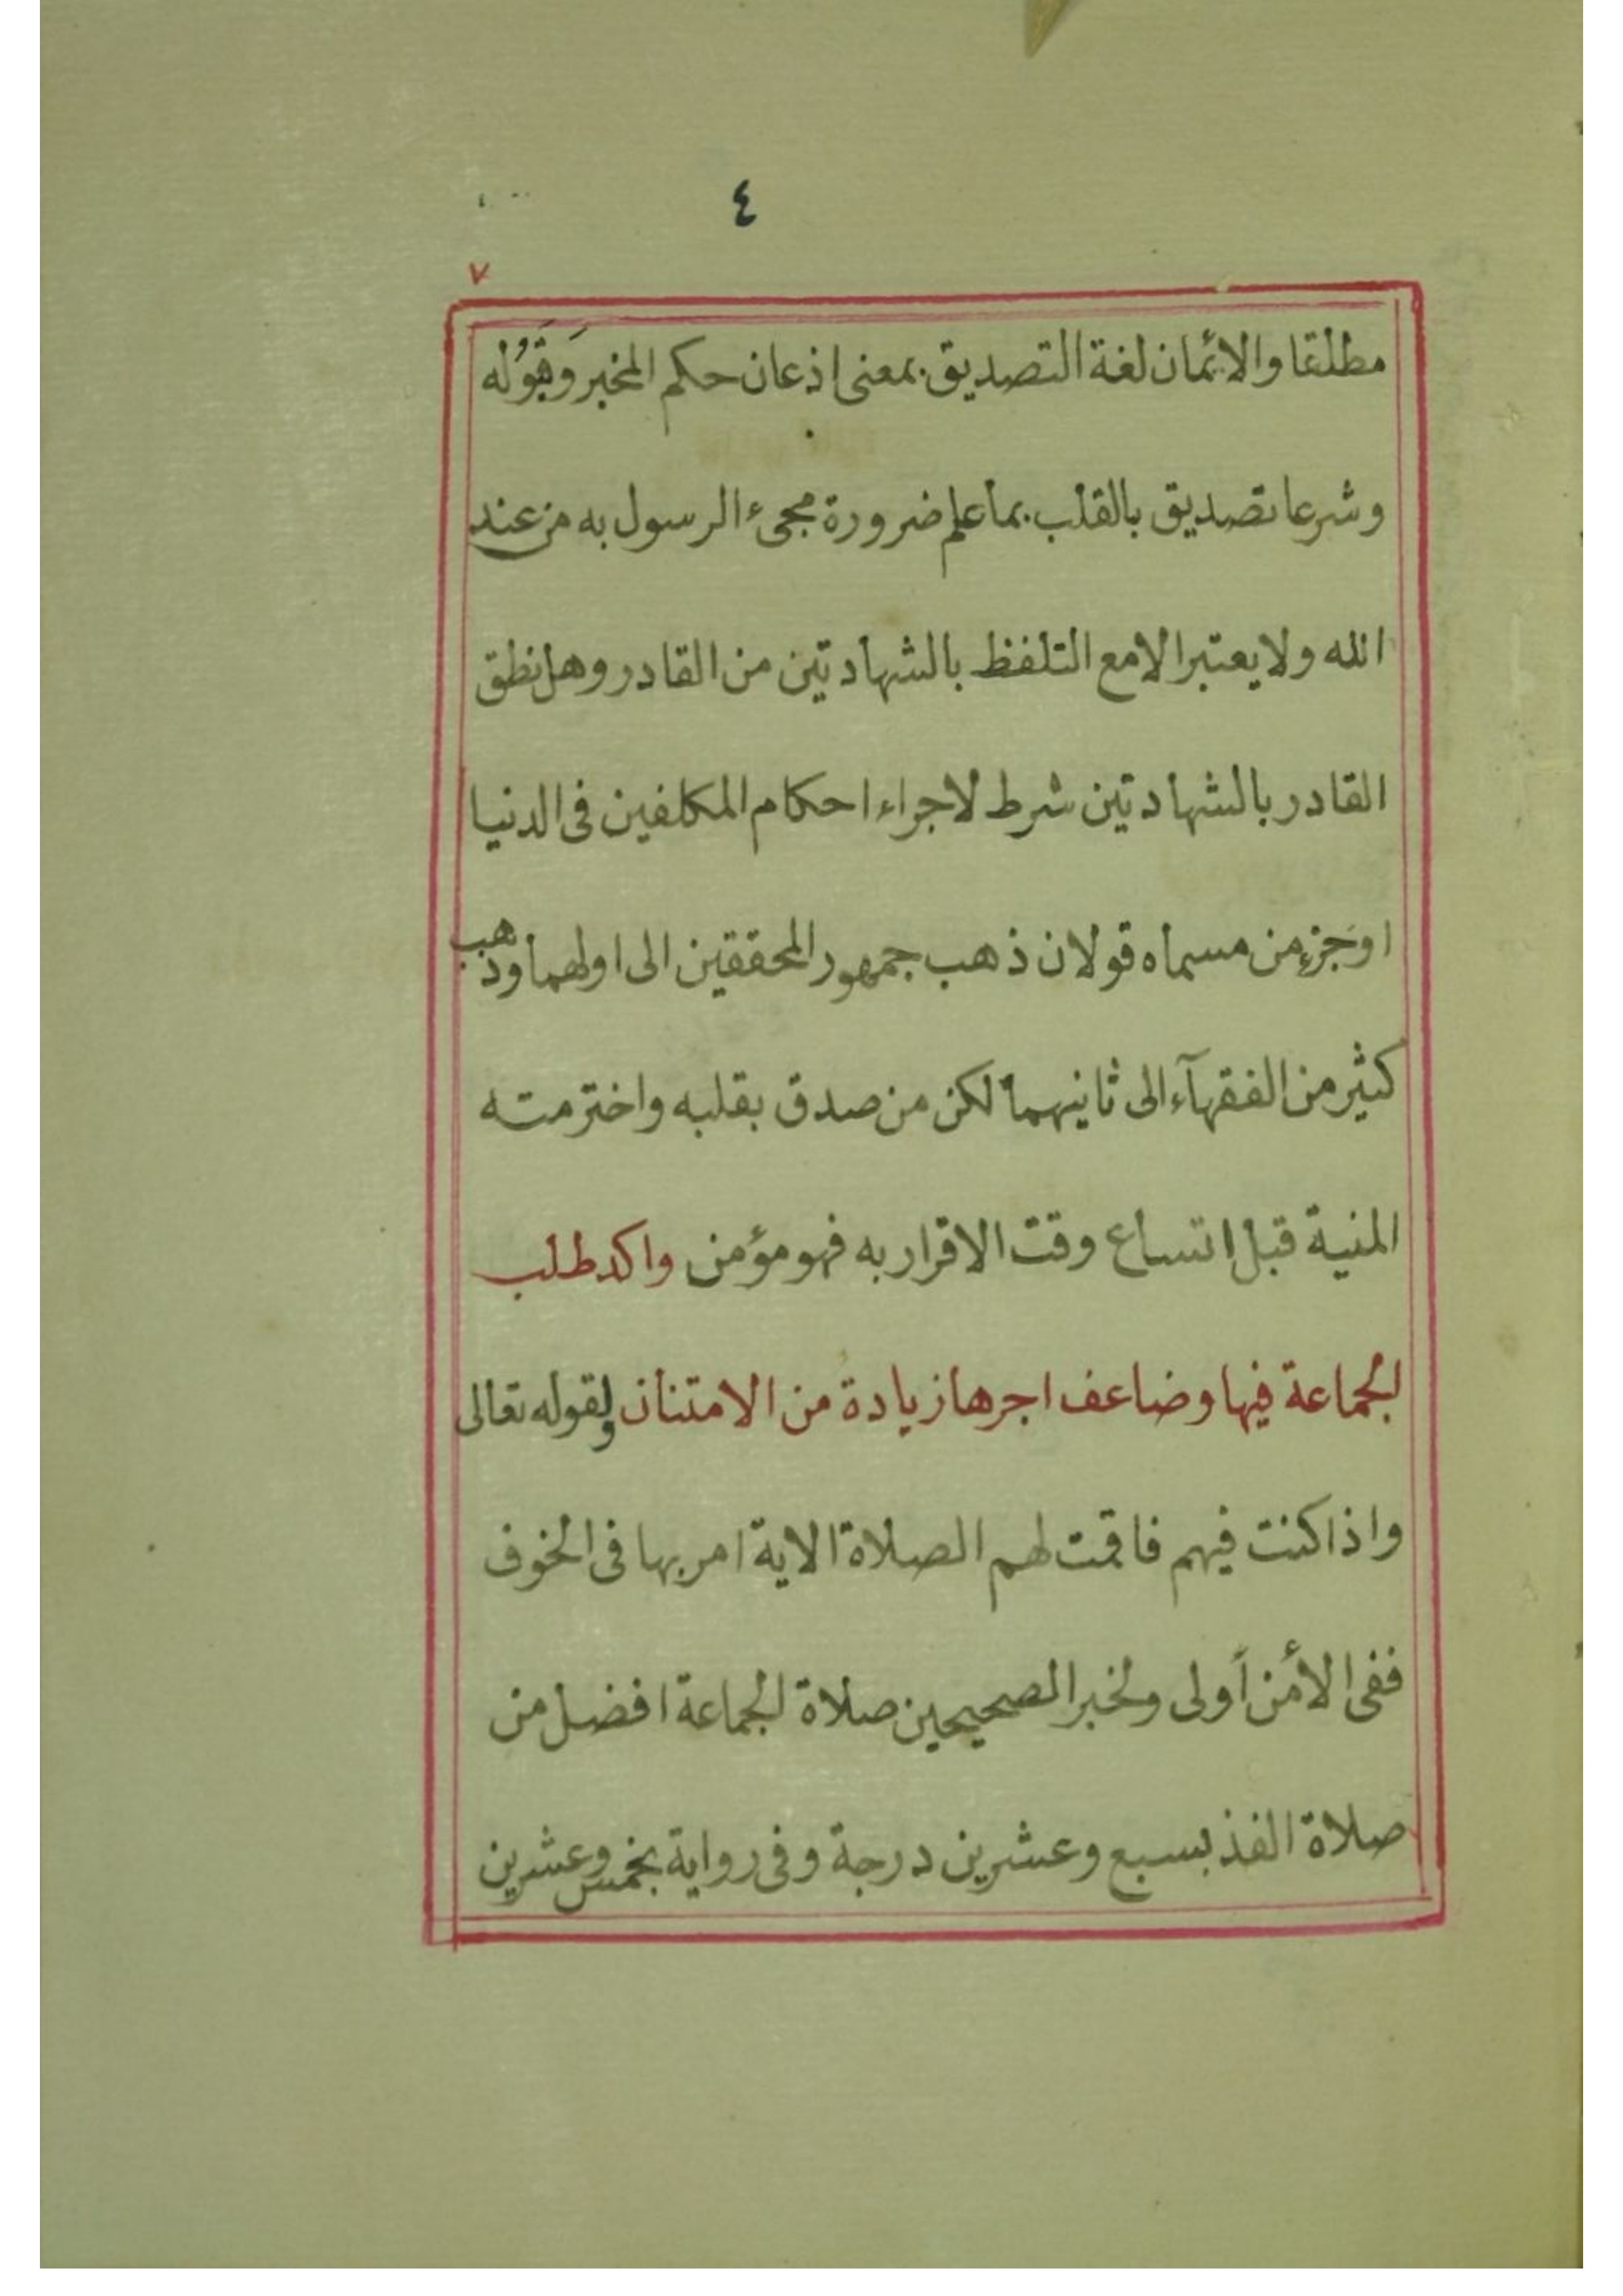 ٤
٧
مطلقا والائمان لغة التصديق بمعنى اذعان حكم المخبر وَقَبُوْله
وشرعا تصديق بالقلب بما علم ضرورة مجىء الرسول به من عند
الله ولا يعتبر الا مع التلفظ بالشهادتين من القادر وهل نطق
القادر بالشهادتين شرط لاجراء احكام المكلفين فى الدنيا
اوجزء من مسماه قولان ذهب جمهور المحققين الى اولهما وذهب
كثير من الفقهآء الى ثانيهما لكن من صدق بقلبه واخترمته
المنية قبل اتساع وقت الاقرار به فهو مؤمن واكد طلب
الجماعة فيها وضاعف اجرها زيادة من الامتنان ولقوله تعالى
واذا كنت فيهم فاقمت لهم الصلاة الاية امر بها فى الخوف
ففى الأمن أولى ولخبر الصحيحين صلاة الجماعة افضل من
صلاة الفذ بسبع وعشرين درجة وفى رواية بخمس وعشرين